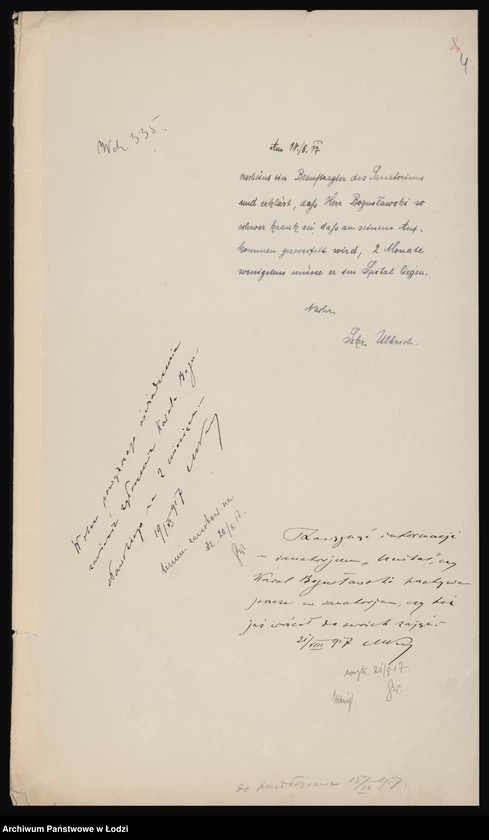 4
Wch 335.
Am 18./6. 17
erscheint ein Beauftragter des Sanatoriums
und erklärt, daß Herr Bogusławski so
schwer krank sei, daß an seinem Auf-
kommen gezweifelt wird, 2 Monate
wenigstens müsse er im Spital liegen.
Sekr. Ulbrich.
Wobec powyższego oświadczenia
zawiesić zgłoszenia Karola Bogu-
sławskiego na 2 miesiące.—
19/VI 917
termin zanotow. na
20/8 17.
Zasięgnąć informacji
w sanatorjum „Unitas”, czy
Karol Bogusławski przebywa
jeszcze w sanatorjum, czy też
już wrócił do swoich zajęć.—
21/VIII 917
wyk. 21/8 17.
do przedłożenia 15/IX 917.
Archiwum Państwowe w Łodzi